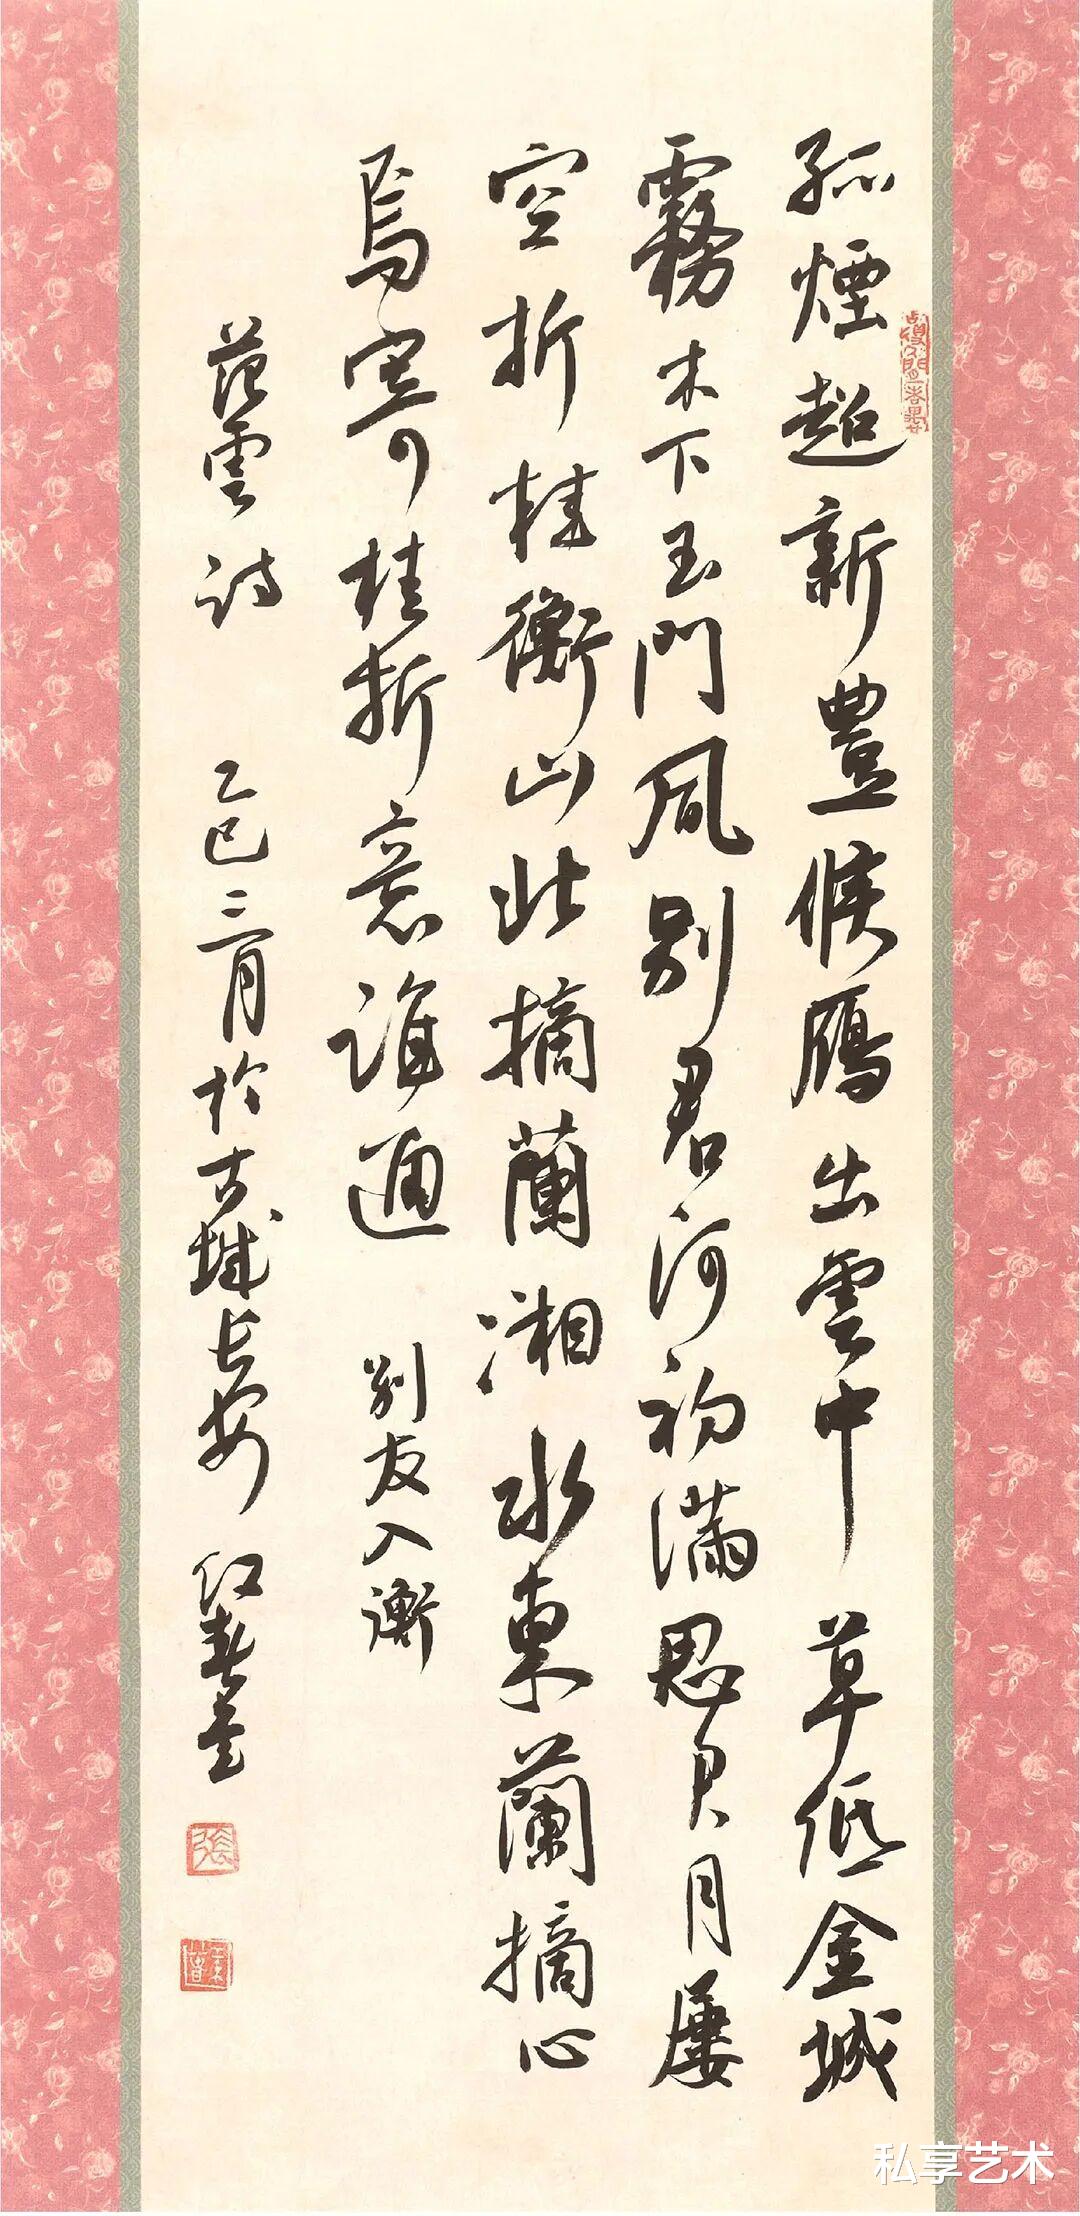 孤煙超新豐候雁出雲中草低金城
霧木下玉門風別君河初滿思君月屢
空折桂衡山北摘蘭湘水東蘭摘心
焉寄桂折意誰通 別友入衡
范雲詩 乙巳三月於古城長安 红春書
張
私享艺术